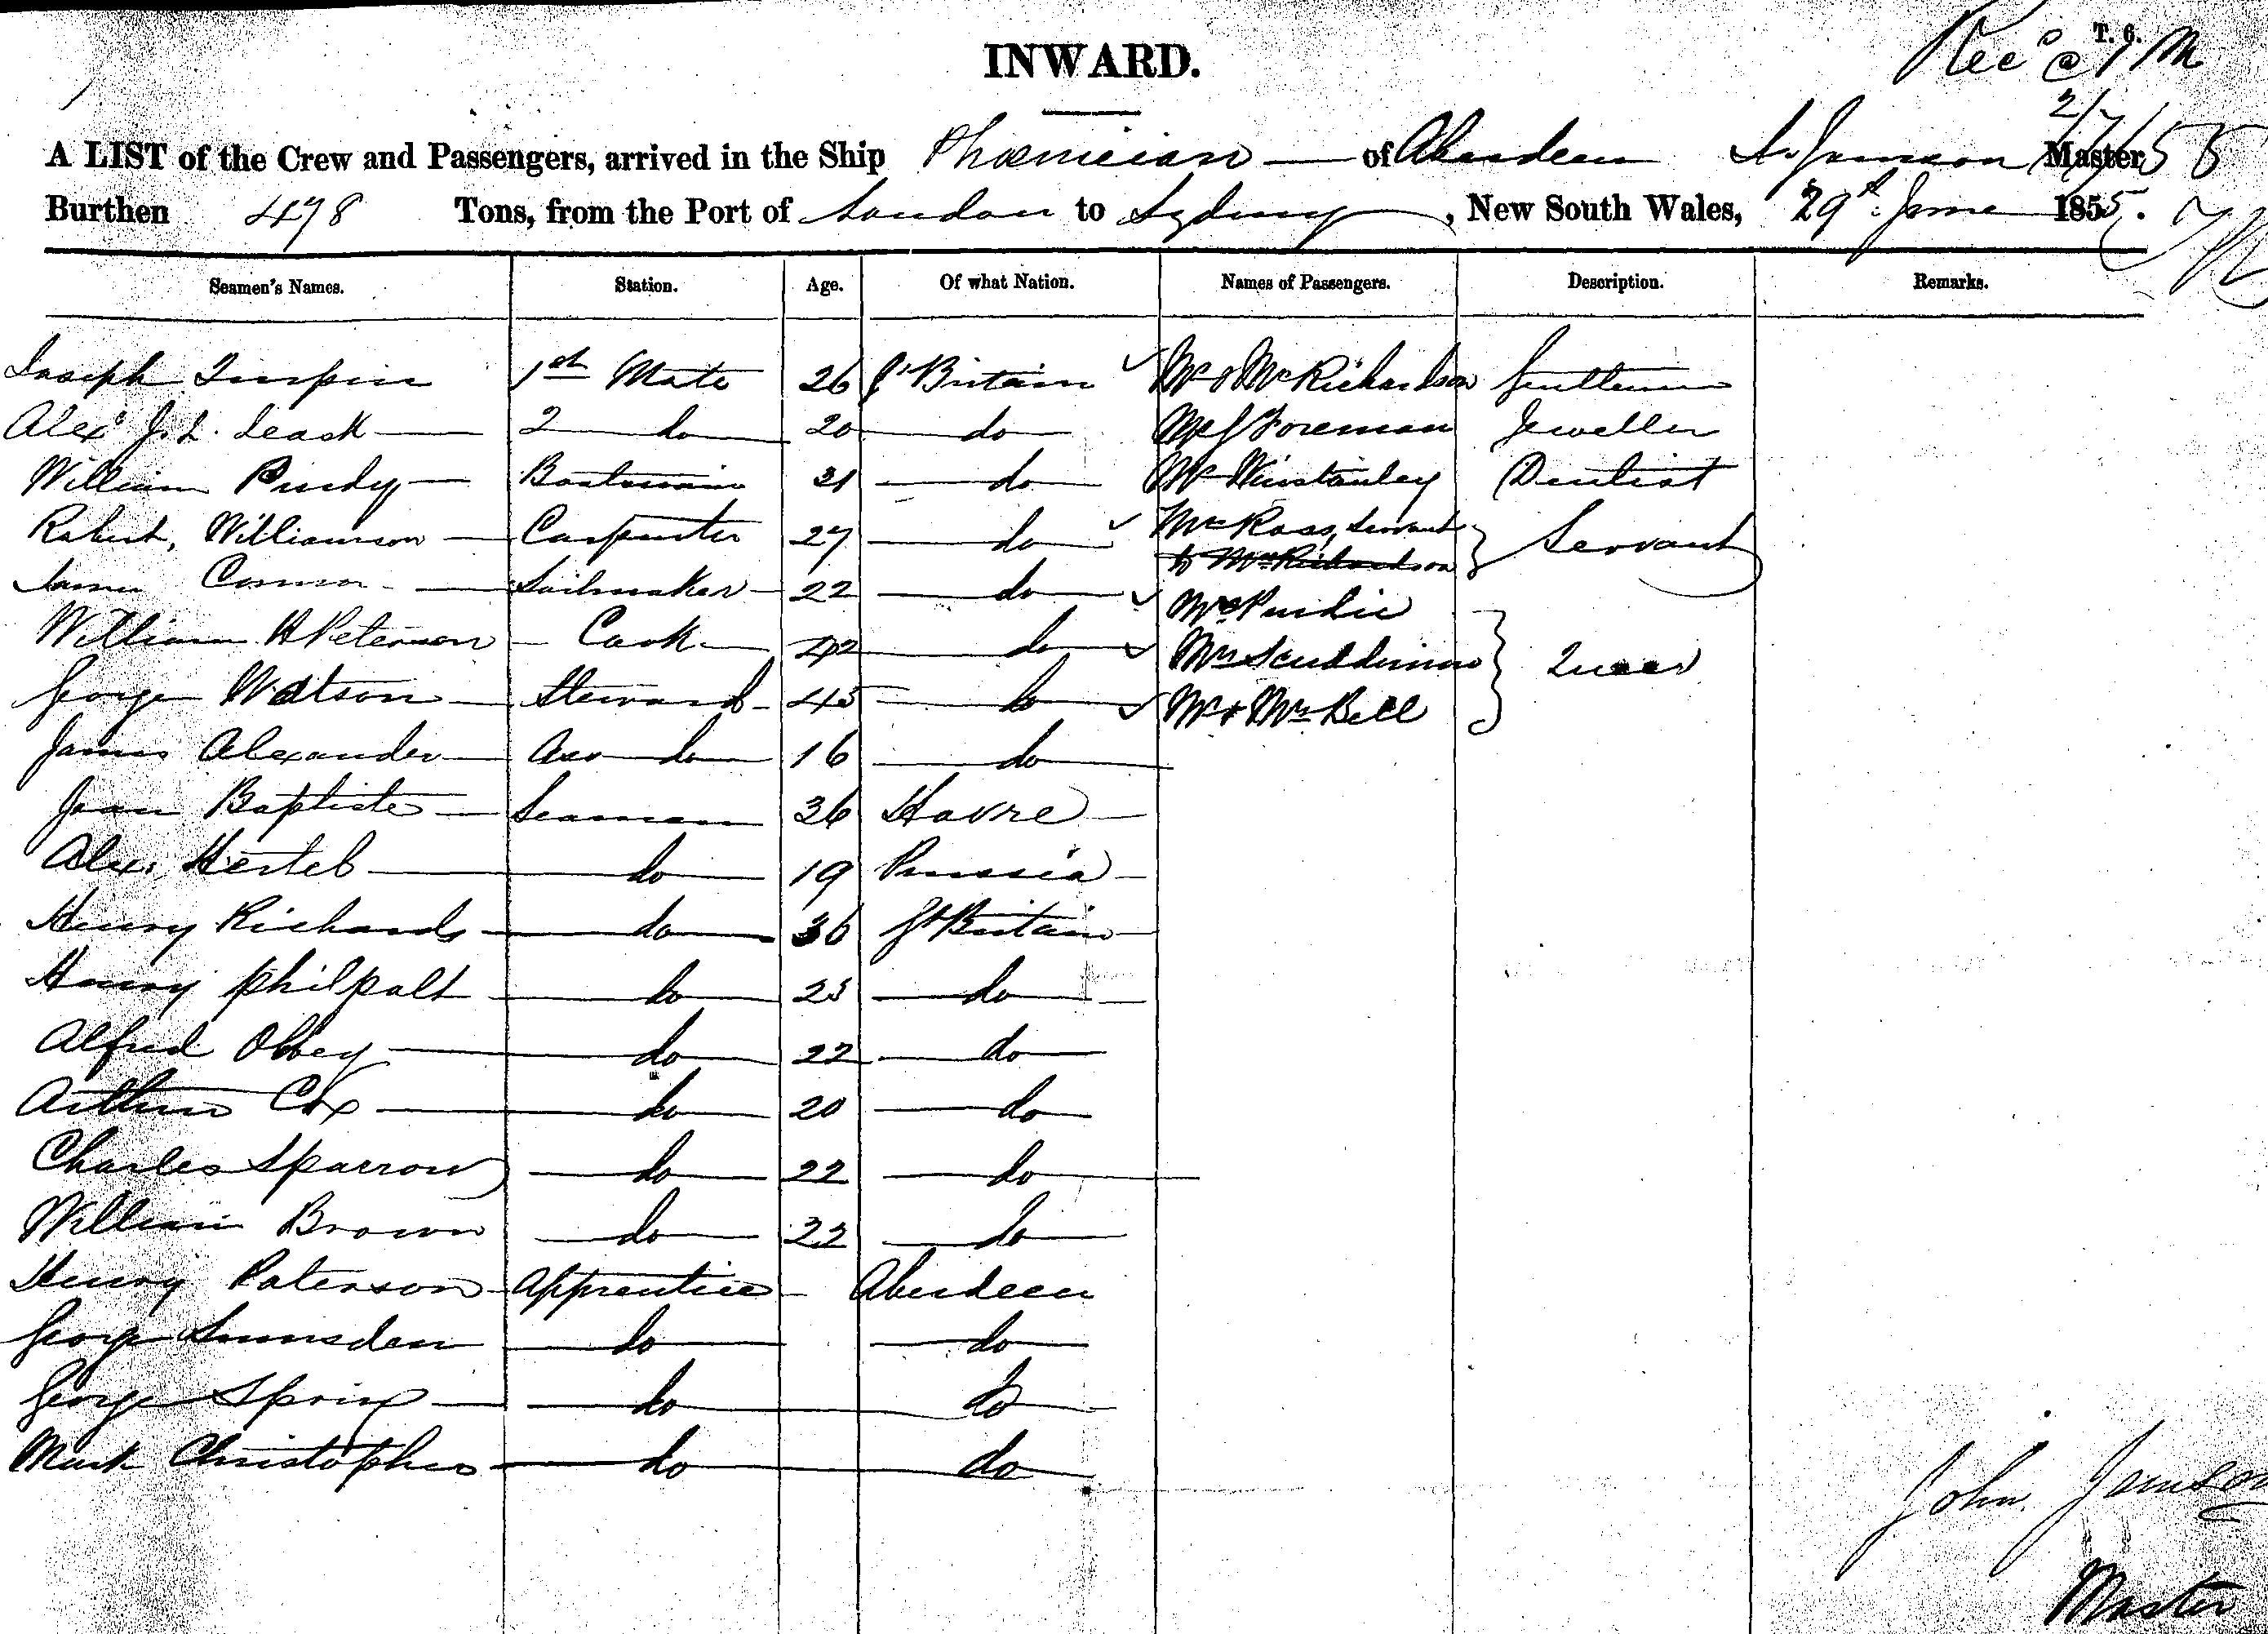 T. 6.
Rec'd @ 1 PM
2/7/55
INWARD.
A LIST of the Crew and Passengers, arrived in the Ship Phœnician of Aberdeen Jamson Master
Burthen 478 Tons, from the Port of London to Sydney, New South Wales, 29th June 1855.
Seamen's Names. Station. Age. Of what Nation. Names of Passengers. Description. Remarks.
Joseph Turpin 1st Mate 26 Gt Britain Mr & Mrs Richardson Gentleman
Alexr J. L. Leask 2 do 20 do Mr J Foreman Jeweller
William Purdy Boatswain 31 do Mr Winstanley Dentist
Robert Williamson Carpenter 27 do Mrs Ross, Servant Servant
to Mrs Richardson
James Connor Sailmaker 22 do Mrs Purdie
William H Peterson Cook 42 do Mrs
George Watson Steward 45 do Mr & Mrs Bell
James Alexander Ass do 16 do
Jean Baptiste Seaman 36 Havre
Alex. Hertel do 19 Prussia
Henry Richards do 36 Gt Britain
Henry Philpalt do 23 do
Alfred Obbey do 22 do
Arthur Cox do 20 do
Charles Sparrow do 22 do
William Brown do 22 do
Henry Paterson Apprentice Aberdeen
George Lumsden do do
George Sprix do do
Mark Christopher do do
John Jamson
Master